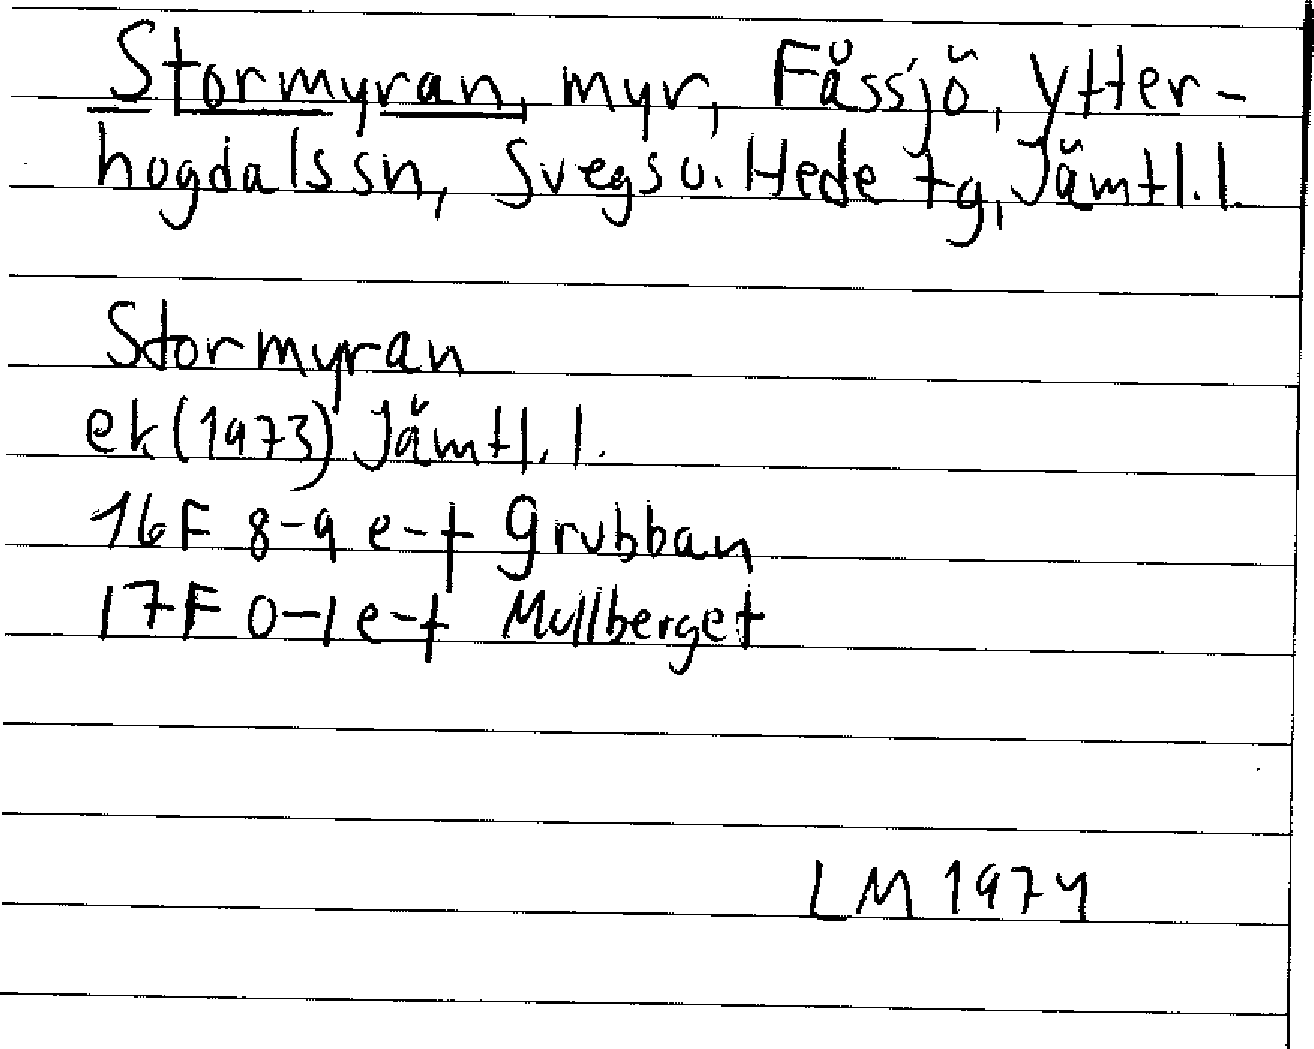 Stormyran, myr, Fåssjö, Ytter-
hogdalssn, Svegs o. Hede tg, Jämtl. l.
Stormyran
ek (1973) Jämtl. l.
16F 8-9 e-f Grubban
17F 0-1 e-f Mullberget
LM 1974